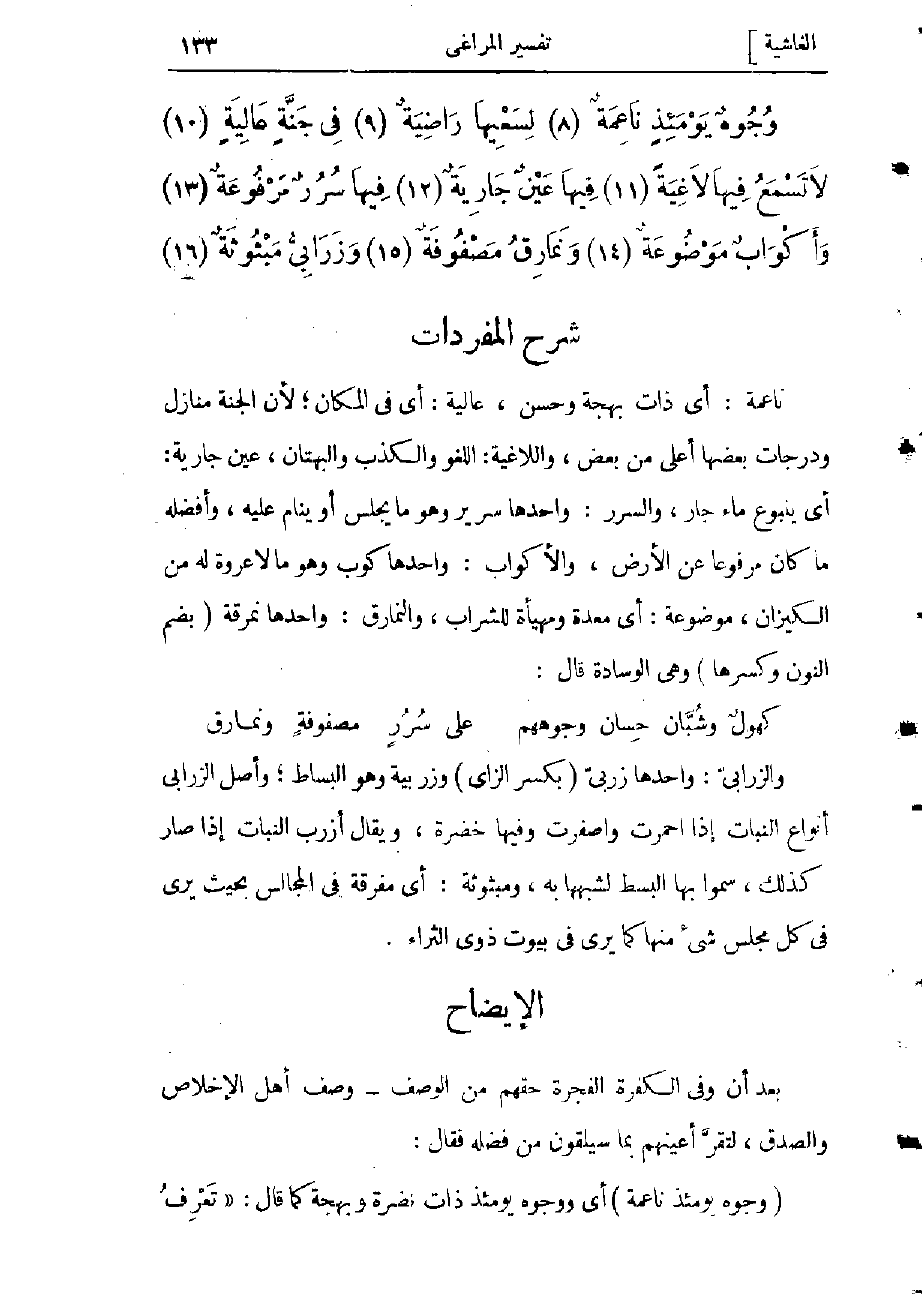 الغاشية ] تفسير المراغى ١٣٣
وُجُوهٌ يَوْمَئِذٍ نَاعِمَةٌ (٨) لِسَعْيِهَا رَاضِيَةٌ (٩) فِى جَنَّةٍ عَالِيَةٍ (١٠)
لاَ تَسْمَعُ فِيهَا لاَغِيَةً (١١) فِيهَا عَيْنٌ جَارِيَةٌ (١٢) فِيهَا سُرُرٌ مَرْفُوعَةٌ (١٣)
وَأَكْوَابٌ مَوْضُوعَةٌ (١٤) وَنَمَارِقُ مَصْفُوفَةٌ (١٥) وَزَرَابِيُّ مَبْثُوثَةٌ (١٦)
شرح المفردات
ناعمة : أى ذات بهجة وحسن ، عالية : أى فى المكان ؛ لأن الجنة منازل
ودرجات بعضها أعلى من بعض ، واللاغية : اللغو والكذب والبهتان ، عين جارية :
أى ينبوع ماء جار ، والسرر : واحدها سرير وهو ما يجلس أو ينام عليه ، وأفضله
ما كان مرفوعا عن الأرض ، والأكواب : واحدها كوب وهو ما لا عروة له من
الكيزان ، موضوعة : أى معدة ومهيأة للشراب ، والنمارق : واحدها نمرقة ( بضم
النون وكسرها ) وهى الوسادة قال :
كهولٌ وشُبَّان حِسان وجوههم على سُرُرٍ مصفوفةٍ ونمارق
والزرابىّ : واحدها زربىّ ( بكسر الزاى ) وزربية وهو البساط ؛ وأصل الزرابى
أنواع النبات إذا احمرت واصفرت وفيها خضرة ، ويقال أزرب النبات إذا صار
كذلك ، سموا بها البسط لشبهها به ، ومبثوثة : أى مفرقة فى المجالس بحيث يرى
فى كل مجلس شىء منها كما يرى فى بيوت ذوى الثراء .
الإيضاح
بعد أن وفى الكفرة الفجرة حقهم من الوصف – وصف أهل الإخلاص
والصدق ، لتقرَّ أعينهم بما سيلقون من فضله فقال :
( وجوه يومئذ ناعمة ) أى ووجوه يومئذ ذات نضرة وبهجة كما قال : « تَعْرِفُ